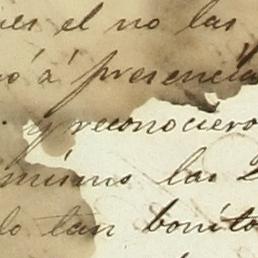 el no las
á presencia
y reconociero
mismo las
lo tan bonito